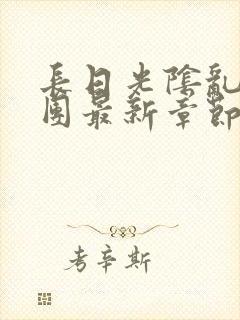 長日光陰亂
團最新章節
考辛斯